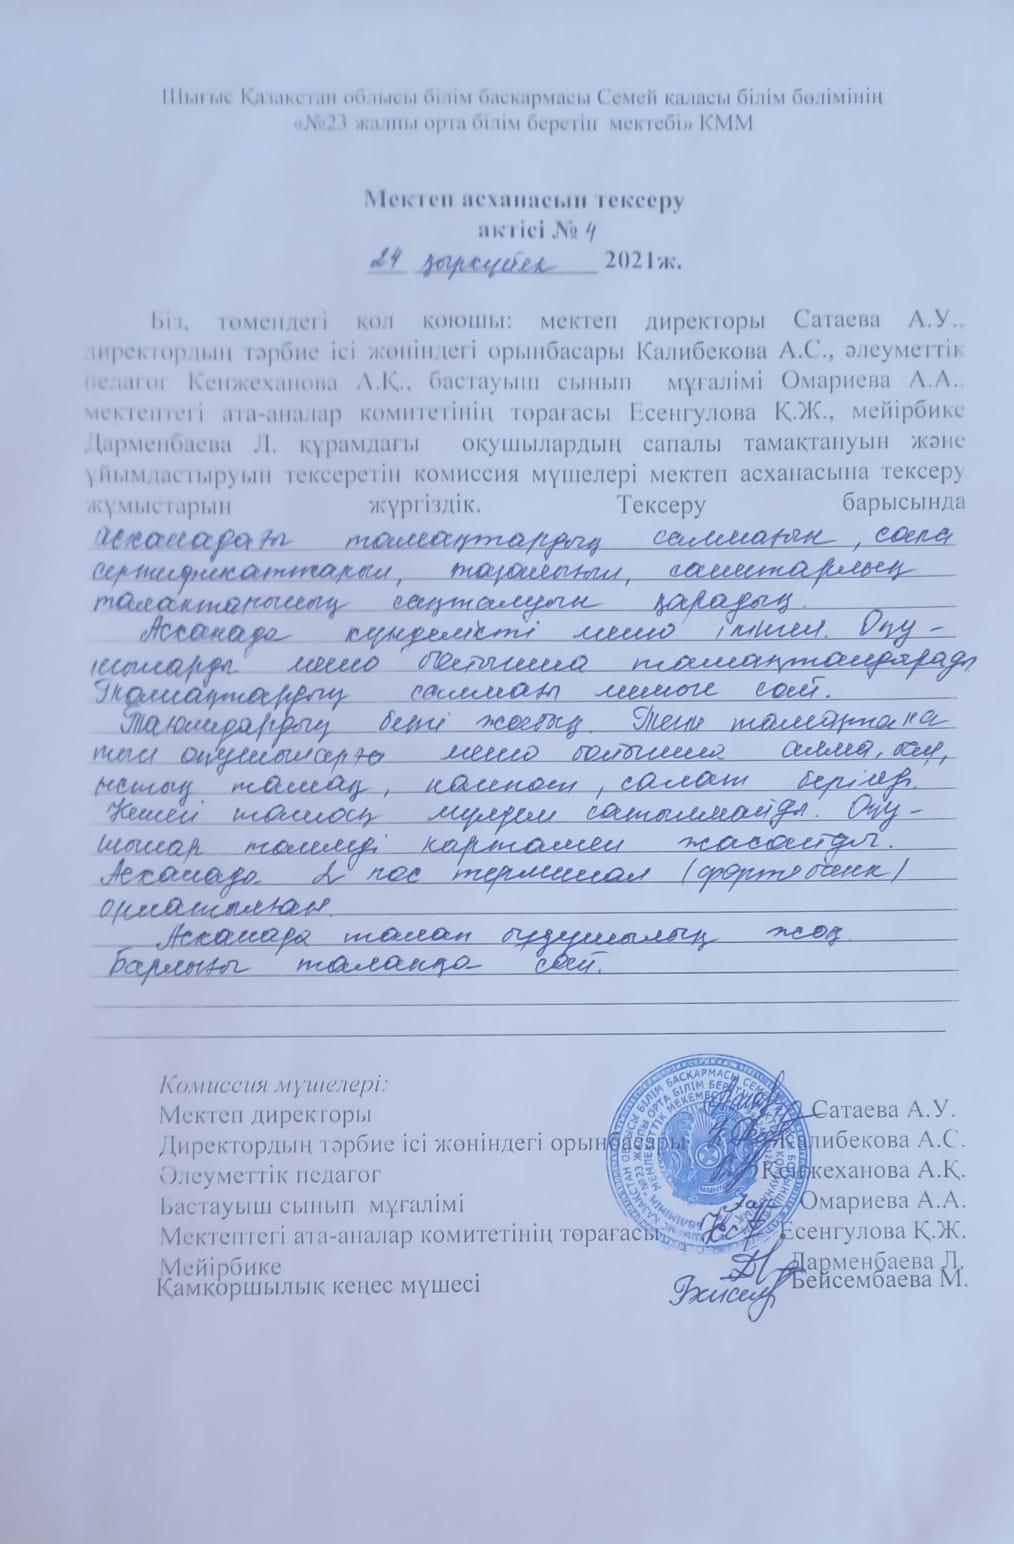 Шығыс Қазақстан облысы білім басқармасы Семей қаласы білім бөлімінің
«№23 жалпы орта білім беретін мектебі» КММ
Мектеп асханасын тексеру
актісі № 4
24 қыркүйек 2021ж.
Біз, төмендегі қол қоюшы: мектеп директоры Сатаева А.У.,
директордың тәрбие ісі жөніндегі орынбасары Калибекова А.С., әлеуметтік
педагог Кенжеханова А.Қ., бастауыш сынып мұғалімі Омариева А.А.,
мектептегі ата-аналар комитетінің төрағасы Есенгулова Қ.Ж., мейірбике
Дарменбаева Л. құрамдағы оқушылардың сапалы тамақтануын және
ұйымдастыруын тексеретін комиссия мүшелері мектеп асханасына тексеру
жұмыстарын жүргіздік. Тексеру барысында
асханадағы тамақтардың салмағын, сапа
сертификаттарын, тазалығын, санитарлық
талаптанының сақталуын қарадық.
Асханада күнделікті меню ілінген. Оқу-
шыларды меню бойынша тамақтандырады
Тамақтардың салмағы менюге сай.
Тағамдардың беті жабық. Тегін тамақтана
тын оқушыларға меню бойынша алма, нан,
ыстық тамақ, компот, салат беріледі.
Кешегі тамақ мүлдем сатылмайды. Оқу-
шылар төлемді картамен жасайды.
Асханада 2 пос терминал (фортебанк)
орнатылған.
Асханада талап бұзушылық жоқ.
Барлығы талапқа сай.
Комиссия мүшелері:
Мектеп директоры Сатаева А.У.
Директордың тәрбие ісі жөніндегі орынбасары Калибекова А.С.
Әлеуметтік педагог Кенжеханова А.Қ.
Бастауыш сынып мұғалімі Омариева А.А.
Мектептегі ата-аналар комитетінің төрағасы Есенгулова Қ.Ж.
Мейірбике Дарменбаева Л.
Қамқоршылық кеңес мүшесі Бейсембаева М.